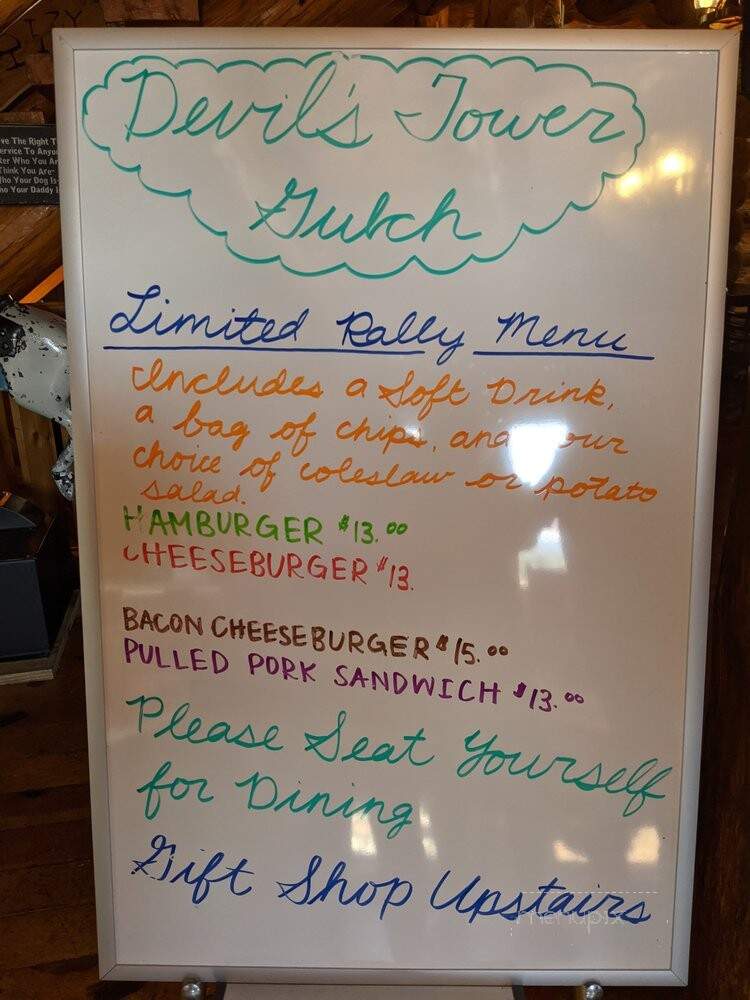 Devil's Tower
Gulch
Limited Rally Menu
Includes a Soft Drink,
a bag of chips, and your
choice of coleslaw or potato
salad.
HAMBURGER $13.00
CHEESEBURGER $13.
BACON CHEESEBURGER $15.00
PULLED PORK SANDWICH $13.00
Please Seat Yourself
for Dining
Gift Shop Upstairs
ve The Right T
ervice To Anyo
ter Who You Ar
Think You Are
Who Your Dog Is
ho Your Daddy I
menupix